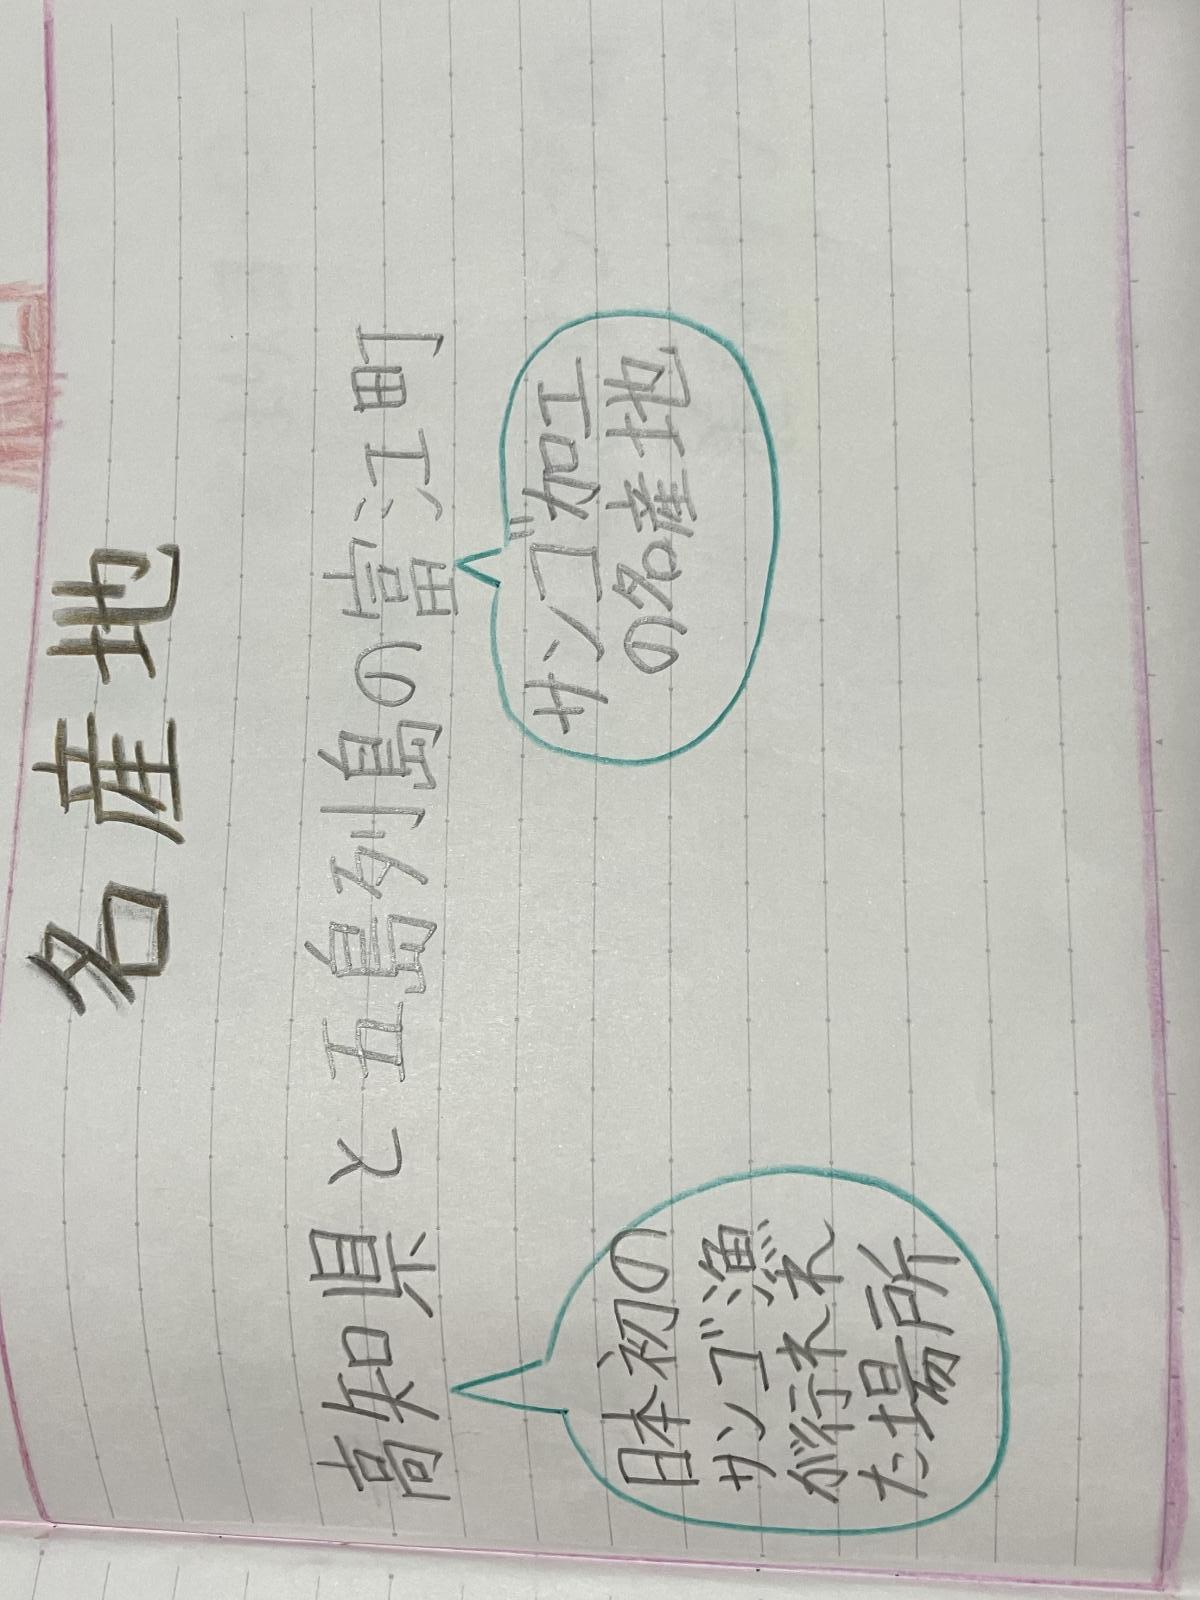 名産地
高知県と五島列島の富江町
日本初の
サンゴ漁
が行われ
た場所
サンゴ加工
の名産地